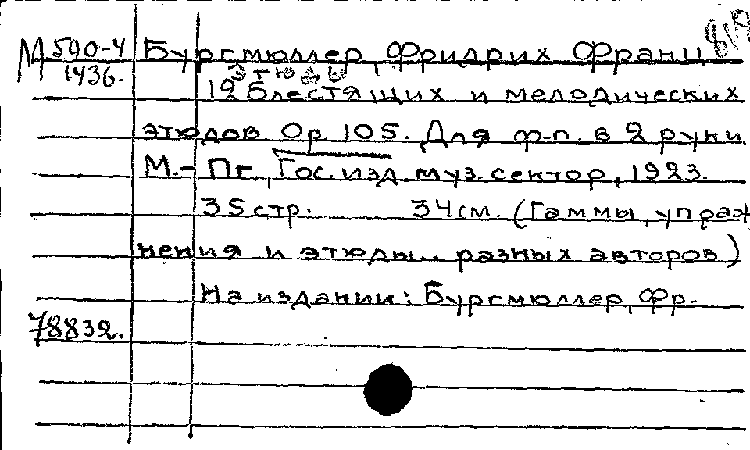 М 500-4 Бургмюллер, Фридрих Франц
1436. Этюды
12 блестящих и мелодических
этюдов. Op. 105. Для ф-п. в 2 руки
М.-Пг., Гос. изд. муз. сектор, 1923.
35 стр. 34 см. (Гаммы, упраж
нения и этюды.. разных авторов)
На издании: Бургмюллер, Фр.
78832.